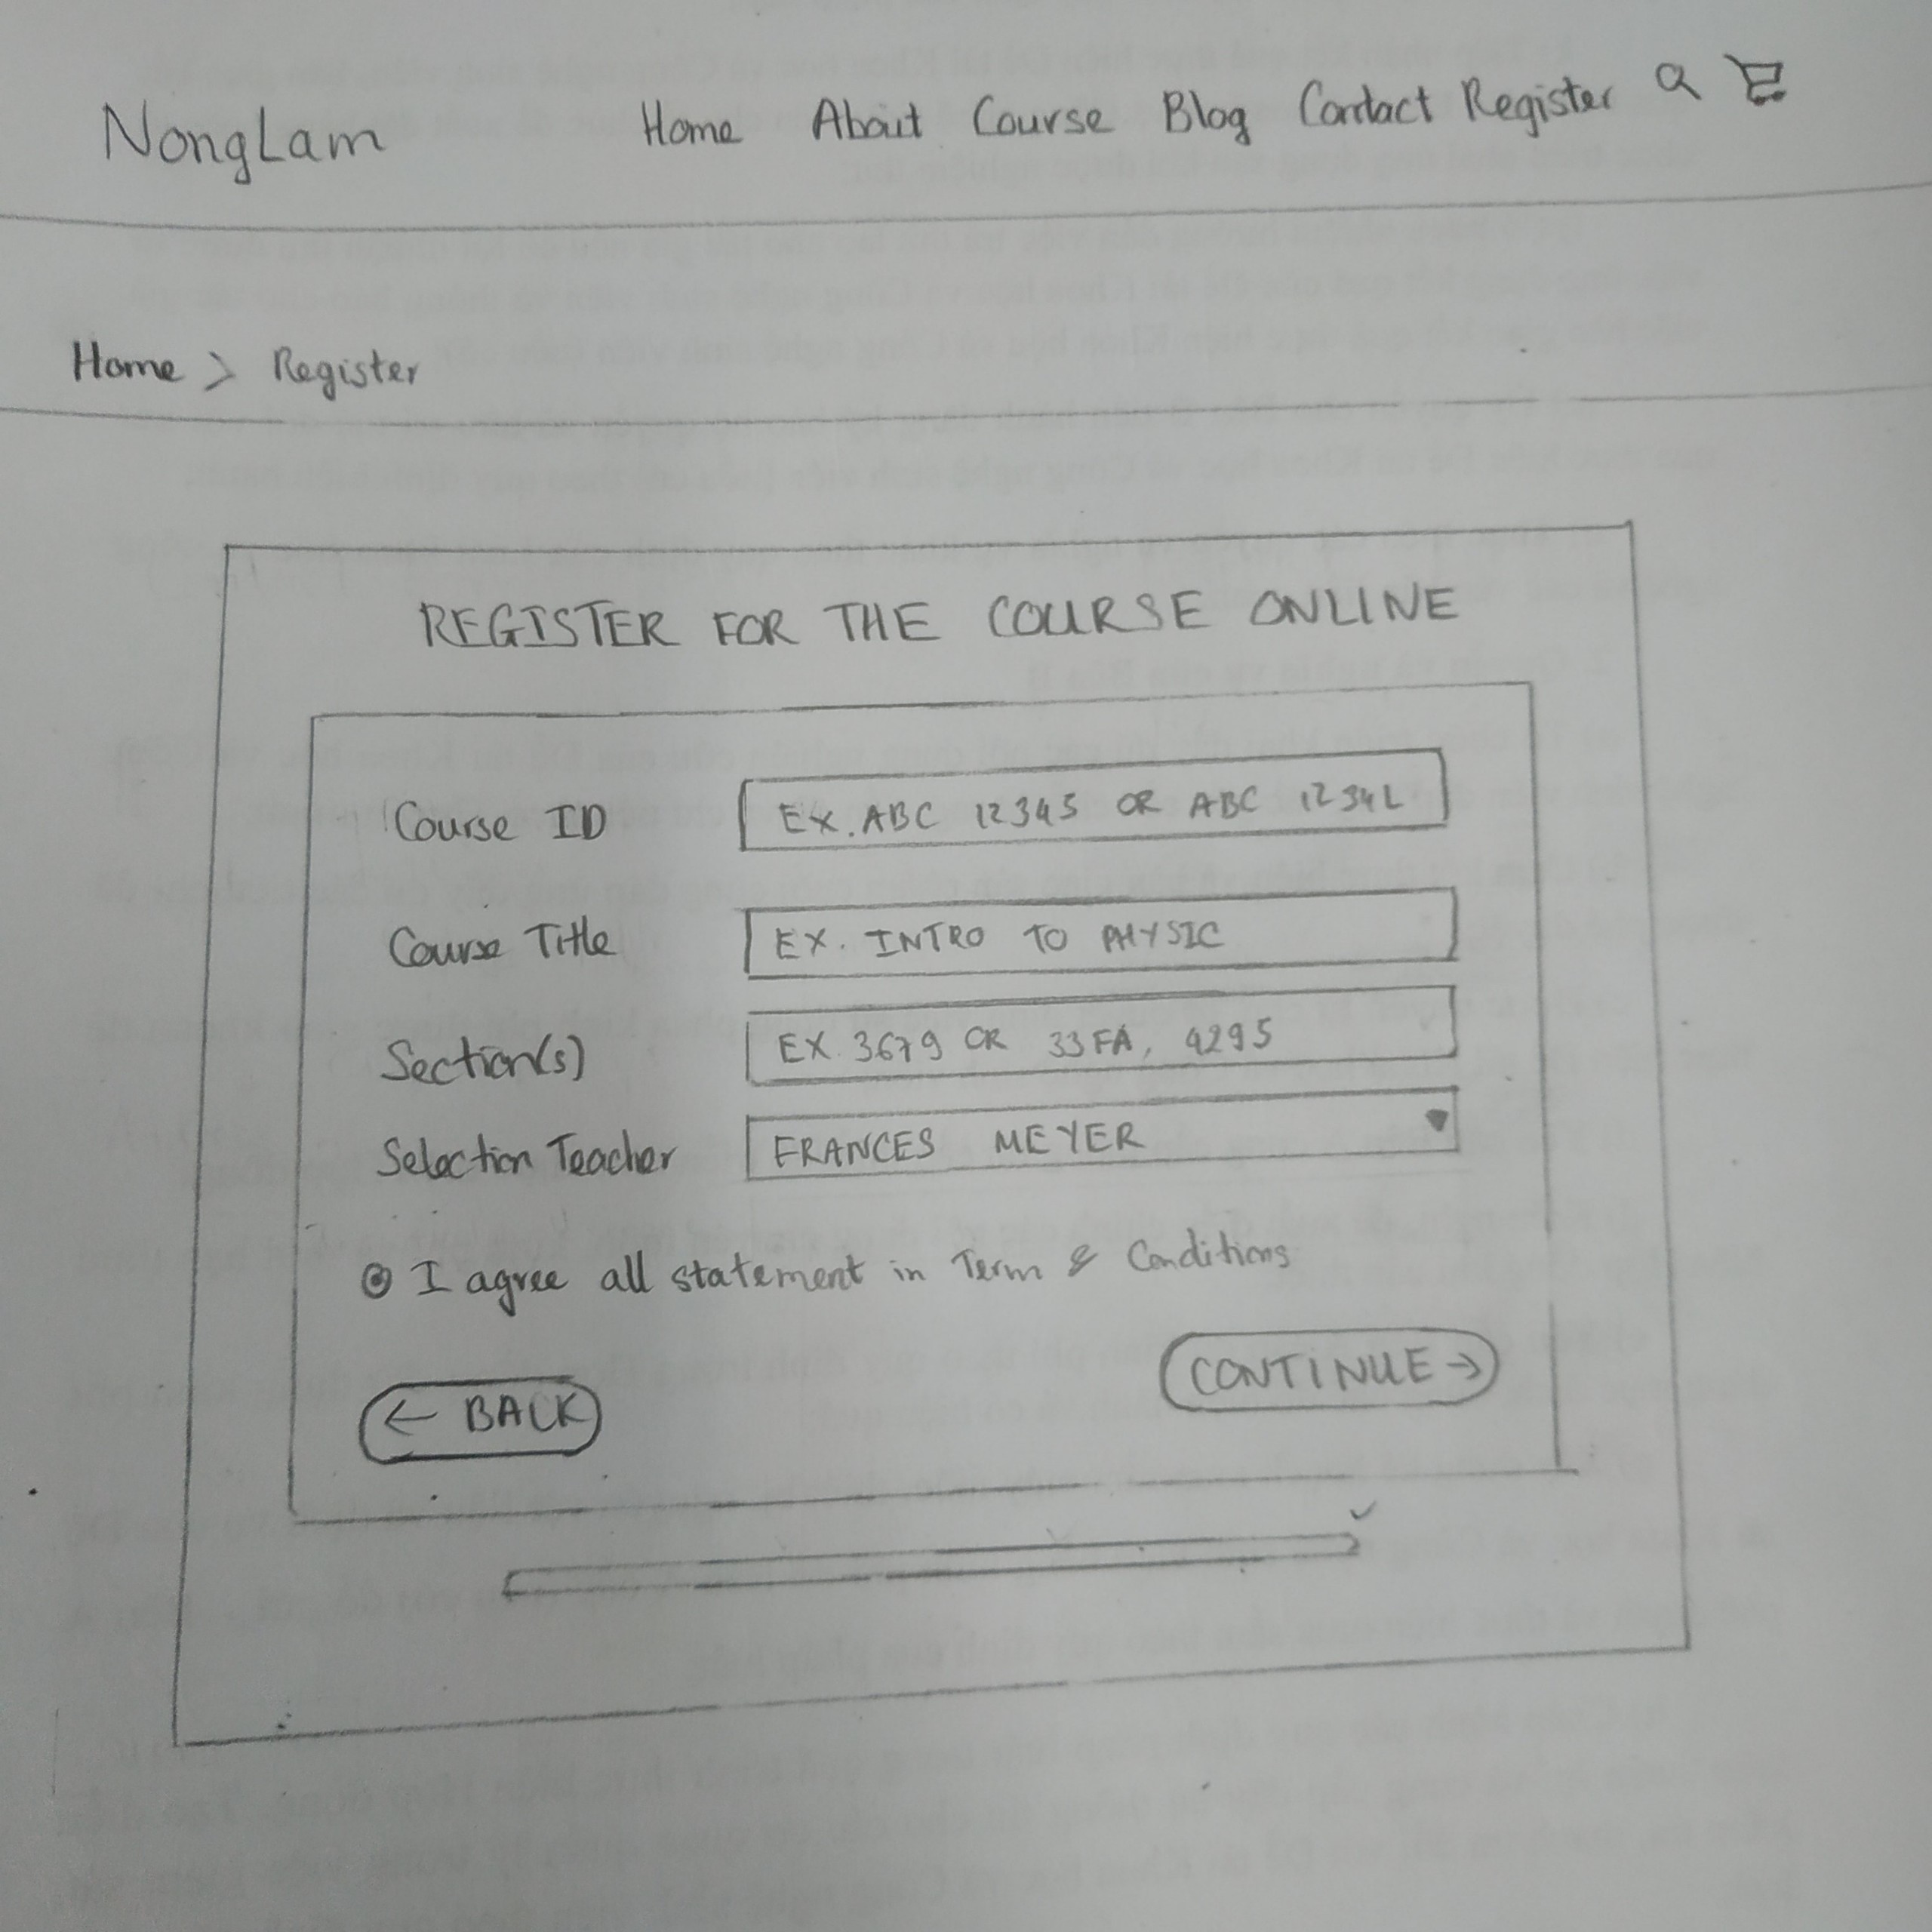 NongLam Home About Course Blog Contact Register
Home > Register
REGISTER FOR THE COURSE ONLINE
Course ID EX. ABC 12345 OR ABC 1234L
Course Title EX. INTRO TO PHYSIC
Section(s) EX 3679 OR 33FA, 4295
Selection Teacher FRANCES MEYER
I agree all statement in Term & Conditions
← BACK CONTINUE →